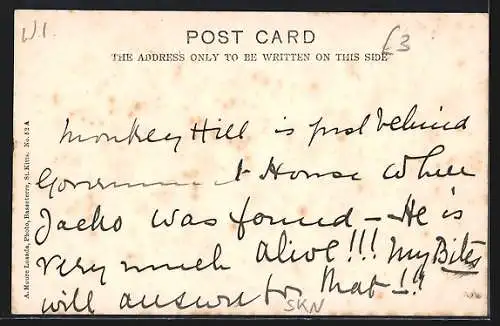 W.I.
£3
POST CARD
THE ADDRESS ONLY TO BE WRITTEN ON THIS SIDE
A. Moure Losada, Photo, Basseterre, St. Kitts. No. 52 A
Monkey Hill is just behind
Government House where
Jacko was found - He is
very much alive!!! My Bites
will answer for that!!
SKN